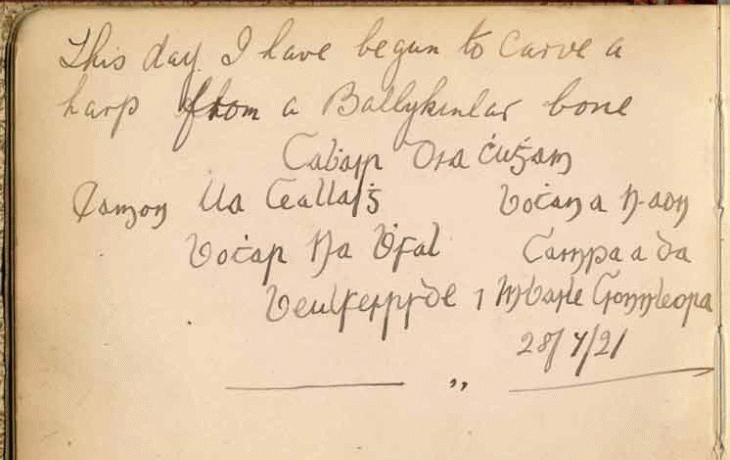 This day I have begun to carve a
harp from a Ballykinlar bone
Caḃair Dia ċuġam
Eamon Ua Ceallaiġ Boṫán a h-aon
Boṫar Na Ḃfál Campa a dó
Beulfeirsde ⁊ mBaile Coinnleora
28/4/21